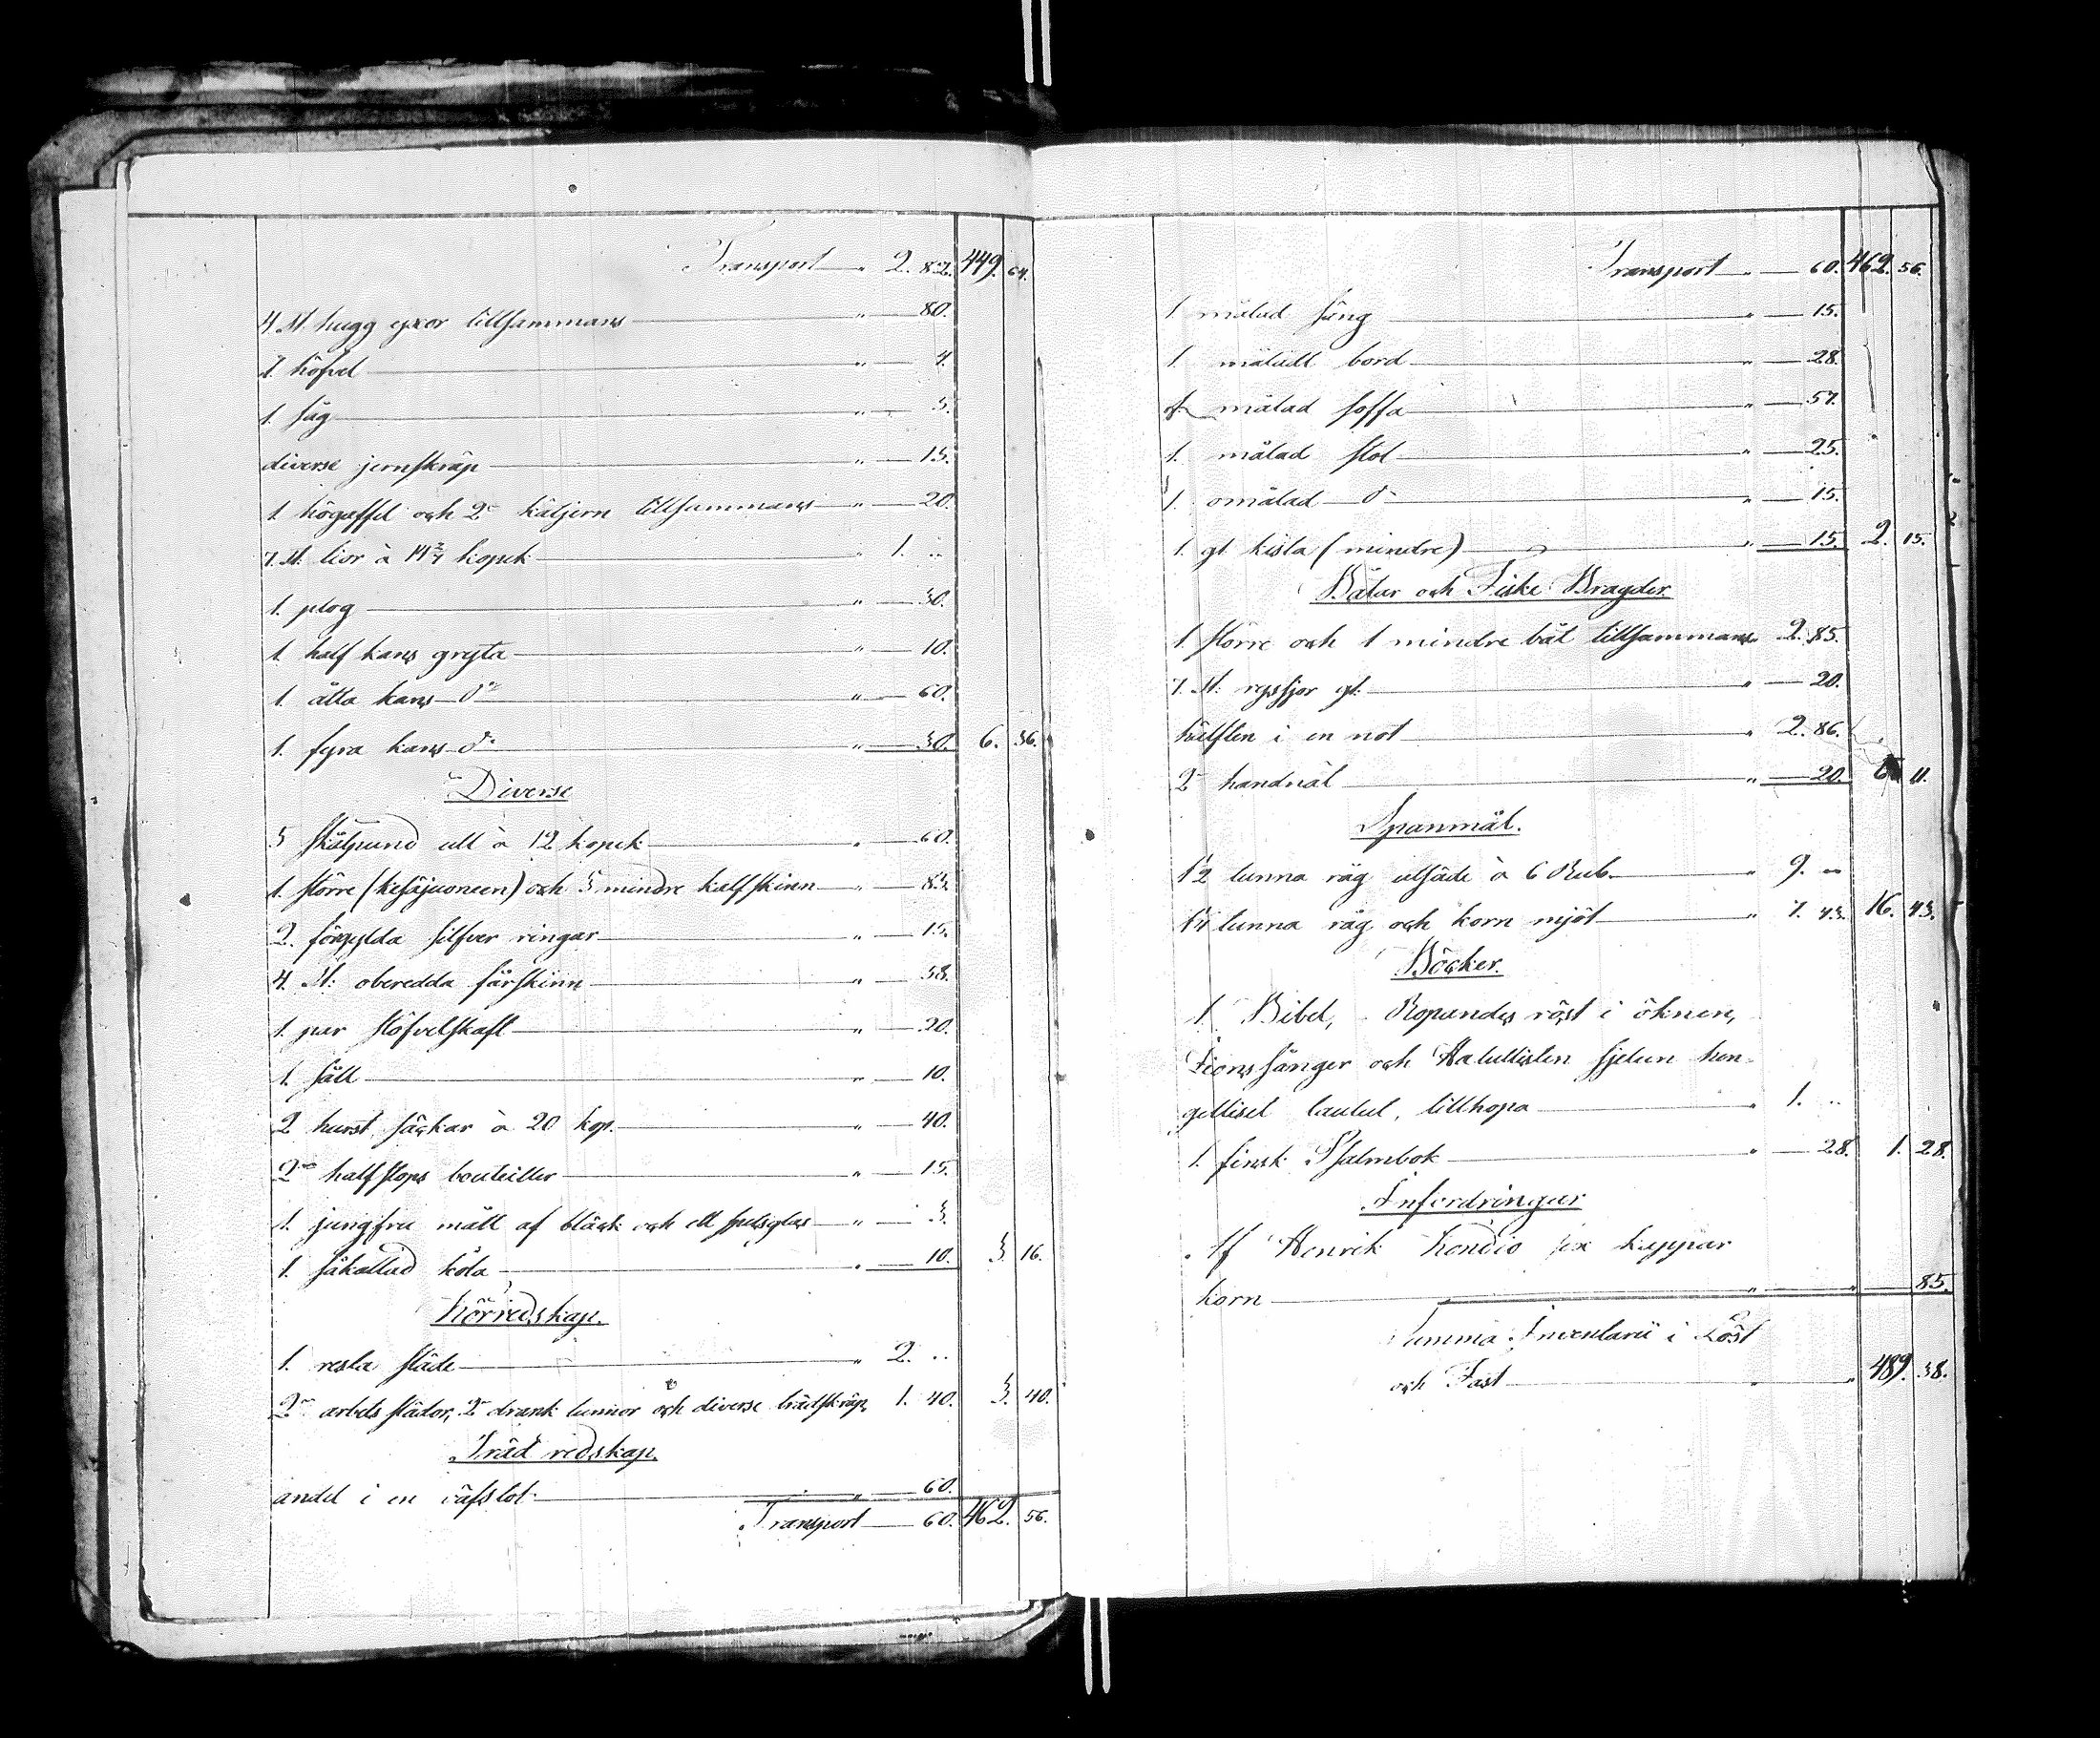 Transport „ 2. 82. 449. 64.
4 St. hugg yxor tillsammans „ 80.
1 höfvel „ 4.
1. såg „ 5.
diverse jernskräp „ 15.
1. högaffel och 2ne båtjern tillsammans „ 20.
7. St. lior à 14 2/7 kopek „ 1. ..
1. plog „ 30.
1. half kans gryta „ 10.
1. åtta kans do „ 60.
1. fyra kans do „ 30. 6. 36.
Diverse
5 skålpund ull à 12 kopek „ 60.
1. större (kesäjuoneen) och 5 mindre kalfskinn „ 85.
2. förgylda silfver ringar „ 15.
4. St: oberedda fårskinn „ 58.
1. par stöfvelskaft „ 20.
1. såll „ 10.
2 hurst säckar à 20 kop. „ 40.
2ne halfstops bouteiller „ 15.
1. jungfru mått af bläck och ett spetsglas „ 3.
1. såkallad köta „ 10. 3. 16.
Körredskap.
1. resla släde „ 2. ..
2ne arbets slädor, 2ne drank tunnor och diverse trädskräp, 1. 40. 3. 40.
Träd redskap.
andel i en väfstol „ 60.
Transport 60. 462. 56.
Transport „ 60. 462. 56.
1. målad säng „ 15.
1. måladt bord „ 28.
1. målad soffa „ 57.
1. målad stol „ 25.
1. omålad do „ 15.
1. gl. kista (mindre) „ 15. 2. 15.
Båtar och Fiske Bragder.
1 större och 1 mindre båt tillsammans 2. 85.
7. St: ryssjor gl. „ 20.
hälften i en not „ 2. 86.
2ne handnät „ 20. 6. 11.
Spanmål.
1½ tunna råg utsäde à 6 Rub. „ 9. ..
1¼ tunna råg och korn mjöl „ 7. 43. 16. 43.
Böcker.
1. Bibel, Ropandes röst i öknen,
Zions sånger och Halullisten sjelun hen-
gelliset laulut, tillhopa „ 1. ..
1. finsk Psalmbok „ 28. 1. 28.
Infordringar
Af Henrik Kondio sex kappar
korn „ „ 85.
Summa Inventarii i Löst
och Fast „ „ 489. 38.